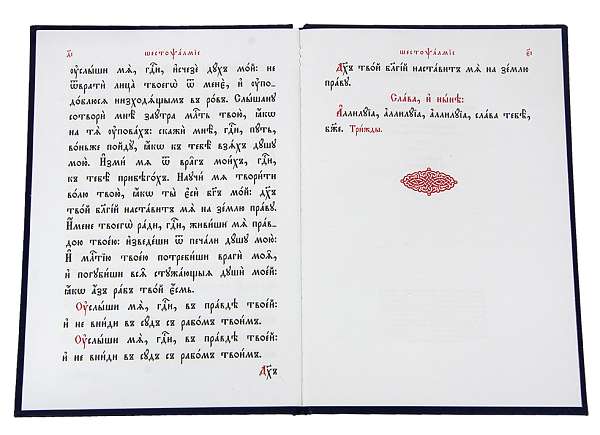 д҃і
шестоѱа́лмїе
ᲂу҆слы́ши мѧ̀, гдⷭ҇и, и҆счезѐ дꙋ́хъ мо́й: не
ѿвратѝ лица̀ твоегѡ̀ ѿ менє̀, и҆ ᲂу҆по-
до́блюсѧ низходѧ́щымъ въ ро́въ. Слы́шанꙋ
сотворѝ мнѣ̀ заꙋ́тра млⷭ҇ть твою̀, ꙗ҆́кѡ
на тѧ̀ ᲂу҆пова́хъ: скажѝ мнѣ̀, гдⷭ҇и, пꙋ́ть,
во́ньже пойдꙋ̀, ꙗ҆́кѡ къ тебѣ̀ взѧ́хъ дꙋ́шꙋ
мою̀. И҆змѝ мѧ ѿ вра̑гъ мои́хъ, гдⷭ҇и,
къ тебѣ̀ прибѣго́хъ. Наꙋчи́ мѧ твори́ти
во́лю твою̀, ꙗ҆́кѡ ты̀ є҆сѝ бг҃ъ мо́й: дх҃ъ
тво́й бл҃гі́й наста́витъ мѧ̀ на зе́млю пра́вꙋ.
И҆́мене твоегѡ̀ ра́ди, гдⷭ҇и, живи́ши мѧ̀ пра́в-
дою твое́ю: и҆зведе́ши ѿ печа́ли дꙋ́шꙋ мою̀:
И҆ млⷭ҇тїю твое́ю потреби́ши врагѝ моѧ̑,
и҆ погꙋби́ши всѧ̑ стꙋжа́ющыѧ дꙋшѝ мое́й:
ꙗ҆́кѡ а҆́зъ ра́бъ тво́й є҆́смь.
Оу҆слы́ши мѧ̀, гдⷭ҇и, въ пра́вдѣ твое́й:
и҆ не вни́ди въ сꙋ́дъ съ рабо́мъ твои́мъ.
Оу҆слы́ши мѧ̀, гдⷭ҇и, въ пра́вдѣ твое́й:
и҆ не вни́ди въ сꙋ́дъ съ рабо́мъ твои́мъ.
Дх҃ъ
шестоѱа́лмїе
є҃і
Дх҃ъ тво́й бл҃гі́й наста́витъ мѧ̀ на зе́млю
пра́вꙋ.
Сла́ва, и҆ ны́нѣ:
А҆ллилꙋ́їа, а҆ллилꙋ́їа, а҆ллилꙋ́їа, сла́ва тебѣ̀,
бж҃е. Три́жды.